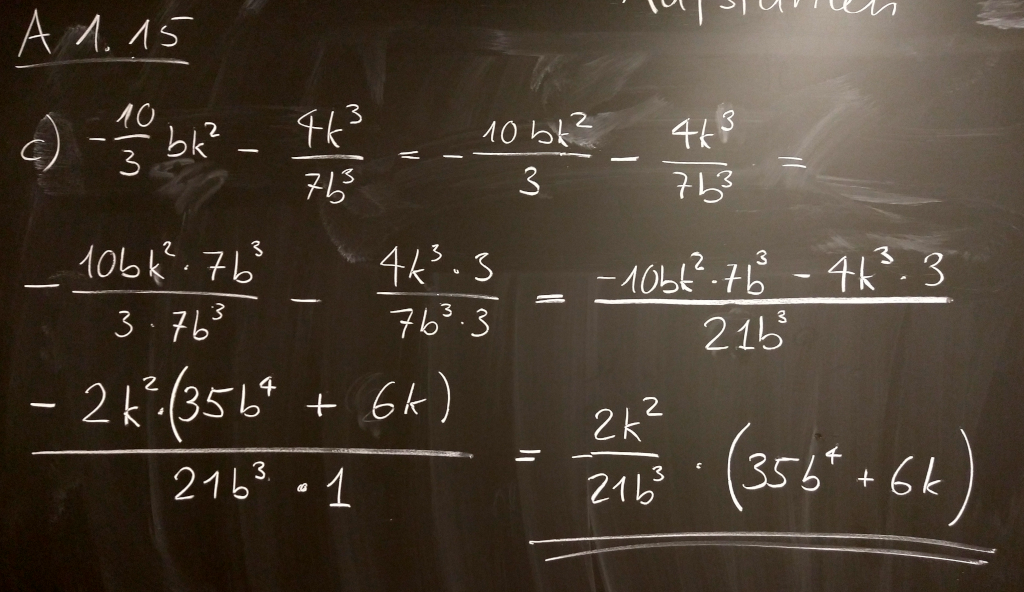 A 1.15
c) -10/3 bk² - 4k³/7b³ = - 10bk²/3 - 4k³/7b³ =
- 10bk²·7b³/3·7b³ - 4k³·3/7b³·3 = -10bk²·7b³ - 4k³·3/21b³
- 2k²·(35b⁴ + 6k)/21b³·1 = - 2k²/21b³ · (35b⁴ + 6k)